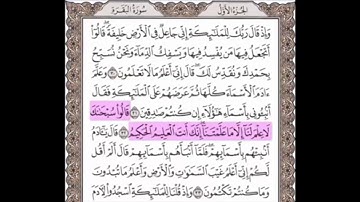 الجزء الأول
سورة البقرة
وَإِذْ قَالَ رَبُّكَ لِلْمَلَٰٓئِكَةِ إِنِّي جَاعِلٌ فِي الْأَرْضِ خَلِيفَةً ۖ قَالُوٓا۟
أَتَجْعَلُ فِيهَا مَن يُفْسِدُ فِيهَا وَيَسْفِكُ الدِّمَآءَ وَنَحْنُ نُسَبِّحُ
بِحَمْدِكَ وَنُقَدِّسُ لَكَ ۖ قَالَ إِنِّيٓ أَعْلَمُ مَا لَا تَعْلَمُونَ ٣٠ وَعَلَّمَ
ءَادَمَ الْأَسْمَآءَ كُلَّهَا ثُمَّ عَرَضَهُمْ عَلَى الْمَلَٰٓئِكَةِ فَقَالَ
أَنۢبِـُٔونِي بِأَسْمَآءِ هَٰٓؤُلَآءِ إِن كُنتُمْ صَٰدِقِينَ ٣١ قَالُوا۟ سُبْحَٰنَكَ
لَا عِلْمَ لَنَآ إِلَّا مَا عَلَّمْتَنَآ ۖ إِنَّكَ أَنتَ الْعَلِيمُ الْحَكِيمُ ٣٢ قَالَ يَٰٓـَٔادَمُ
أَنۢبِئْهُم بِأَسْمَآئِهِمْ ۖ فَلَمَّآ أَنۢبَأَهُم بِأَسْمَآئِهِمْ قَالَ أَلَمْ أَقُل
لَّكُمْ إِنِّيٓ أَعْلَمُ غَيْبَ السَّمَٰوَٰتِ وَالْأَرْضِ وَأَعْلَمُ مَا تُبْدُونَ
وَمَا كُنتُمْ تَكْتُمُونَ ٣٣ وَإِذْ قُلْنَا لِلْمَلَٰٓئِكَةِ اسْجُدُوا۟ لِـَٔادَمَ